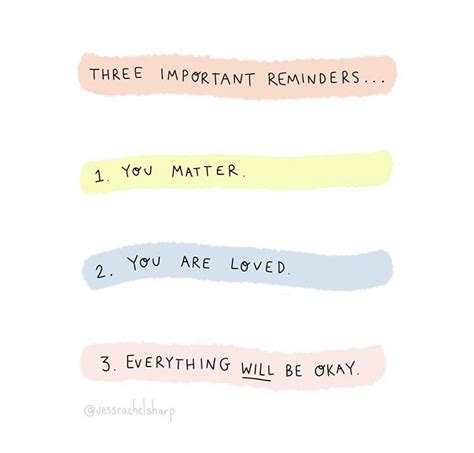 THREE IMPORTANT REMINDERS...
1. YOU MATTER.
2. YOU ARE LOVED.
3. EVERYTHING WILL BE OKAY.
@jessrachelsharp